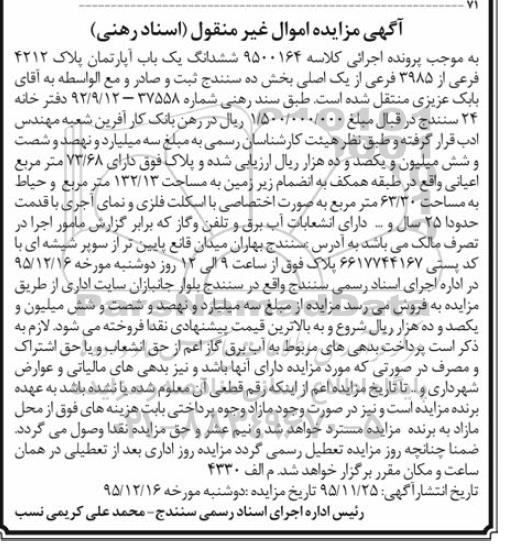 ۷۱
آگهی مزایده اموال غیر منقول (اسناد رهنی)
به موجب پرونده اجرائی کلاسه ۹۵۰۰۱۶۴ ششدانگ یک باب آپارتمان پلاک ۴۲۱۲
فرعی از ۳۹۸۵ فرعی از یک اصلی بخش ده سنندج ثبت و صادر و مع الواسطه به آقای
بابک عزیزی منتقل شده است. طبق سند رهنی شماره ۳۷۵۵۸ – ۹۲/۹/۱۲ دفتر خانه
۲۴ سنندج در قبال مبلغ ۱/۵۰۰/۰۰۰/۰۰۰ ریال در رهن بانک کار آفرین شعبه مهندس
ادب قرار گرفته و طبق نظر هیئت کارشناسان رسمی به مبلغ سه میلیارد و نهصد و شصت
و شش میلیون و یکصد و ده هزار ریال ارزیابی شده و پلاک فوق دارای ۷۳/۶۸ متر مربع
اعیانی واقع در طبقه همکف به انضمام زیر زمین به مساحت ۱۳۲/۱۳ متر مربع و حیاط
به مساحت ۶۳/۳۰ متر مربع به صورت اختصاصی با اسکلت فلزی و نمای آجری با قدمت
حدودا ۲۵ سال و ... دارای انشعابات آب برق و تلفن وگاز که برابر گزارش مامور اجرا در
تصرف مالک می باشد به آدرس :سنندج بهاران میدان قانع پایین تر از سوپر شیشه ای با
کد پستی ۶۶۱۷۷۴۴۱۶۷ پلاک فوق از ساعت ۹ الی ۱۲ روز دوشنبه مورخه ۹۵/۱۲/۱۶
در اداره اجرای اسناد رسمی سنندج واقع در سنندج بلوار جانبازان سایت اداری از طریق
مزایده به فروش می رسد مزایده از مبلغ سه میلیارد و نهصد و شصت و شش میلیون و
یکصد و ده هزار ریال شروع و به بالاترین قیمت پیشنهادی نقدا فروخته می شود. لازم به
ذکر است پرداخت بدهی های مربوط به آب برق گاز اعم از حق انشعاب و یا حق اشتراک
و مصرف در صورتی که مورد مزایده دارای آنها باشد و نیز بدهی های مالیاتی و عوارض
شهرداری و.. تا تاریخ مزایده اعم از اینکه رقم قطعی آن معلوم شده یا نشده باشد به عهده
برنده مزایده است و نیز در صورت وجود مازاد وجوه پرداختی بابت هزینه های فوق از محل
مازاد به برنده مزایده مسترد خواهد شد و نیم عشر و حق مزایده نقدا وصول می گردد.
ضمنا چنانچه روز مزایده تعطیل رسمی گردد مزایده روز اداری بعد از تعطیلی در همان
ساعت و مکان مقرر برگزار خواهد شد. م الف ۴۳۳۰
تاریخ انتشارآگهی: ۹۵/۱۱/۲۵ تاریخ مزایده :دوشنبه مورخه ۹۵/۱۲/۱۶
رئیس اداره اجرای اسناد رسمی سنندج- محمد علی کریمی نسب